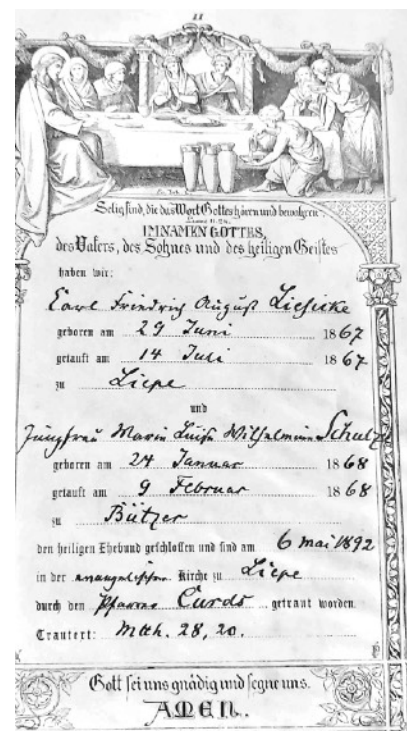 II
Selig sind, die das Wort Gottes hören und bewahren.
IM NAMEN GOTTES,
des Vaters, des Sohnes und des heiligen Geistes
haben wir:
Carl Friedrich August
geboren am 29 Juni 1867
getauft am 14 Juli 1867
zu Liepe
und
Jungfrau Marie Luise Wilhelmine Schulz
geboren am 24 Januar 1868
getauft am 9 Februar 1868
zu Bützer
den heiligen Ehebund geschlossen und sind am 6 Mai 1892
in der evangelischen Kirche zu Liepe
durch den Pfarrer getraut worden.
Trautext: Mtth. 28, 20.
Gott sei uns gnädig und segne uns.
AMEN.